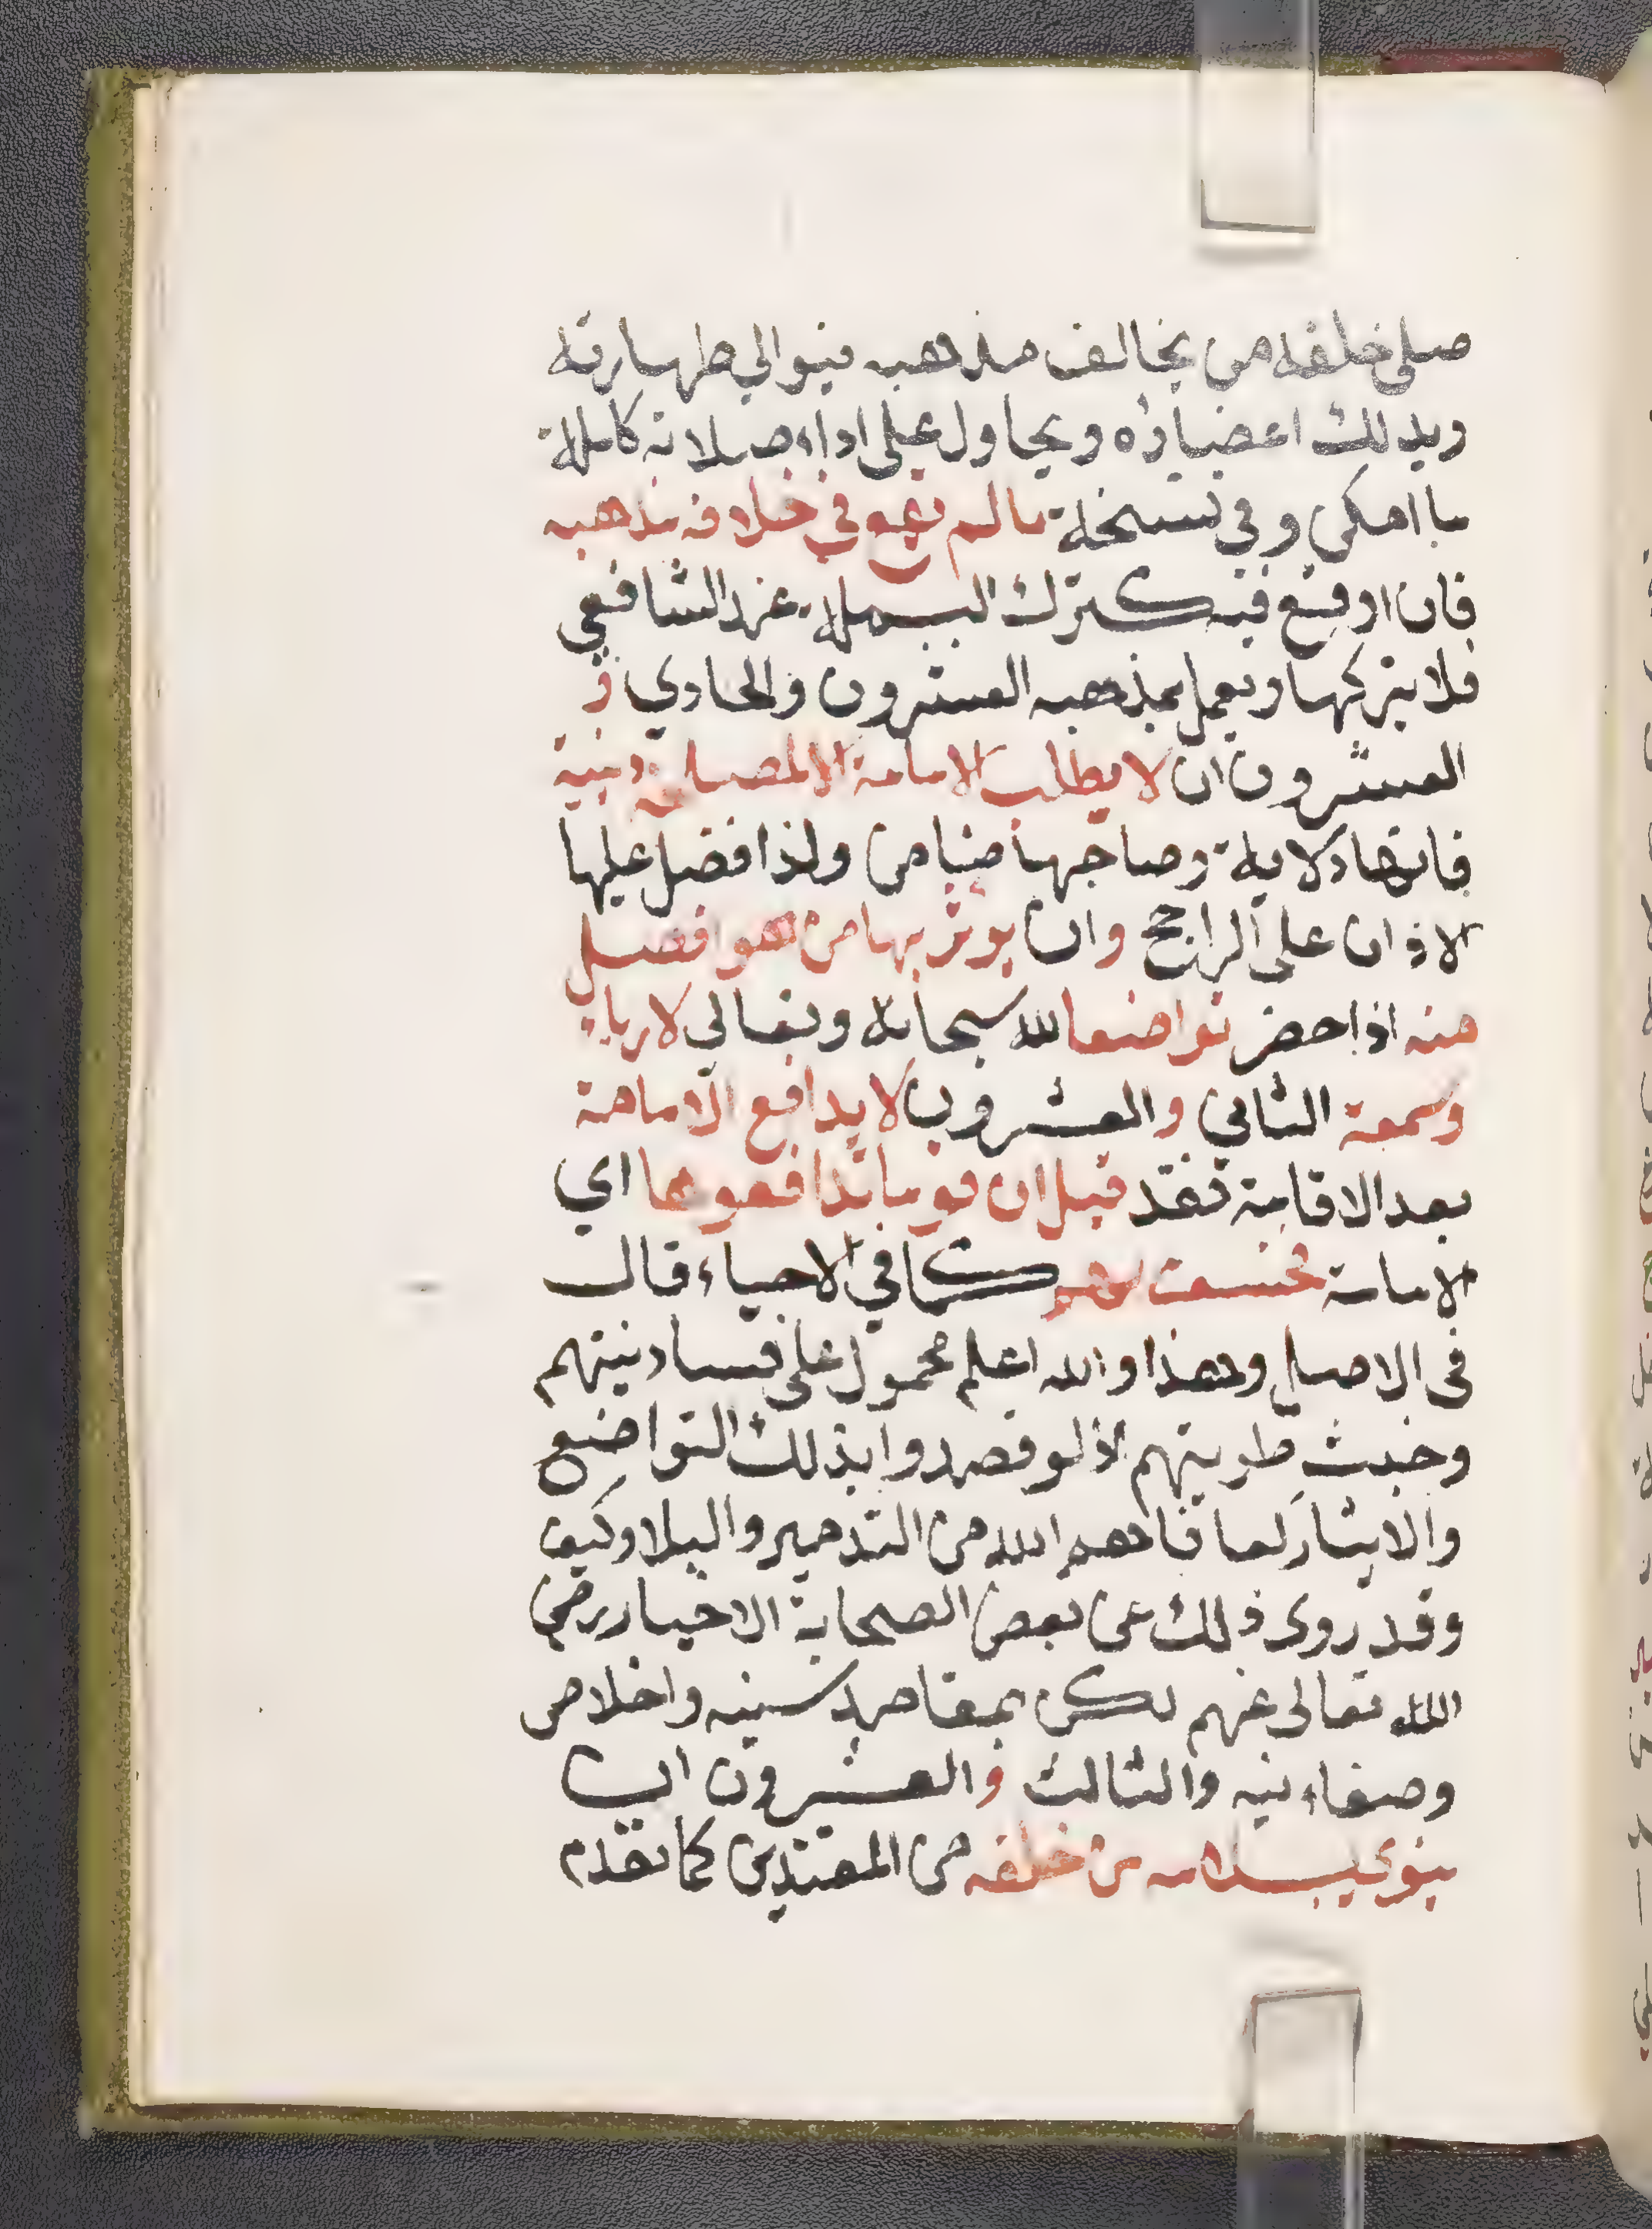 صلى خلفه من يخالف مذهبه فيوالي طهارته
ويدلك اعضاؤه ويحاول على اداء صلاته كاملة
ما امكن وفي نسخة ما لم يقع في خلاف مذهبه
فان اوقع فيه كترك البسملة عند الشافعي
فلا يتركها ويعمل بمذهبه العشرون والحادي و
العشرون ان لا يطلب الامامة الا لمصلحة دينية
فانها ولاية وصاحبها ضامن ولذا فضل عليها
الاذان على الراجح وان يوثر بها من هو افضل
منه اذا حضر تواضعا لله سبحانه وتعالى لا رياء
وسمعة الثاني والعشرون لا يدافع الامامة
بعد الاقامة فقد قيل ان قوما تدافعوها اي
الامامة فخسف بهم كما في الاحياء قال
في الاصل وهذا والله اعلم محمول على فساد نيتهم
وخبث طويتهم اذ لو قصدوا بذلك التواضع
والايثار لما فاجاهم الله من التدمير والبلا وكيف
وقد روى ذلك عن بعض الصحابة الاخيار رضي
الله تعالى عنهم لكن بمقاصد سنيه واخلاص
وصفاء نيه والثالث والعشرون ان
ينوي بسلامه من خلفه من المقتدين كما تقدم